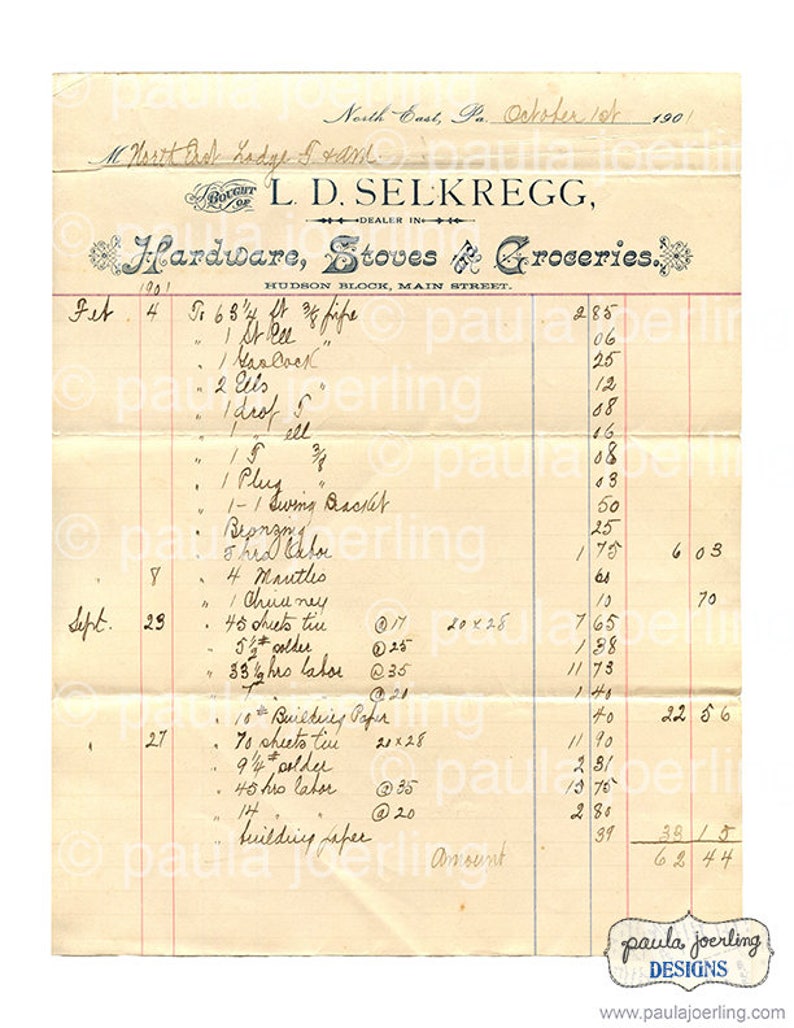 North East, Pa. October 1st 1901
M North East Lodge F & AM.
Bought of L. D. SELKREGG,
DEALER IN
Hardware, Stoves and Groceries.
HUDSON BLOCK, MAIN STREET.
1901
Feb 4 To 63 1/4 ft 3/8 pipe 2 85
" 1 St Ell " 06
" 1 Gas Cock 25
" 2 Ells " 12
" 1 drop T 08
" 1 " ell 06
" 1 T 3/8 08
" 1 Plug " 03
" 1-1 Swing Bracket 50
" Bronzing 25
" 5 hrs labor 1 75 6 03
" 8 " 4 Mantles 60
" 1 Chimney 10 70
Sept. 23 " 45 sheets tin @ 17 20 x 28 7 65
" 5 1/2 # solder @ 25 1 38
" 33 1/2 hrs labor @ 35 11 73
" 7 " " @ 20 1 40
" 10 # Building Paper 40 22 56
" 27 " 70 sheets tin 20 x 28 11 90
" 9 1/4 # solder 2 31
" 45 hrs labor @ 35 15 75
" 14 " " @ 20 2 80
" building paper 39 33 15
Amount 62 44
© paula joerling
paula joerling
DESIGNS
www.paulajoerling.com